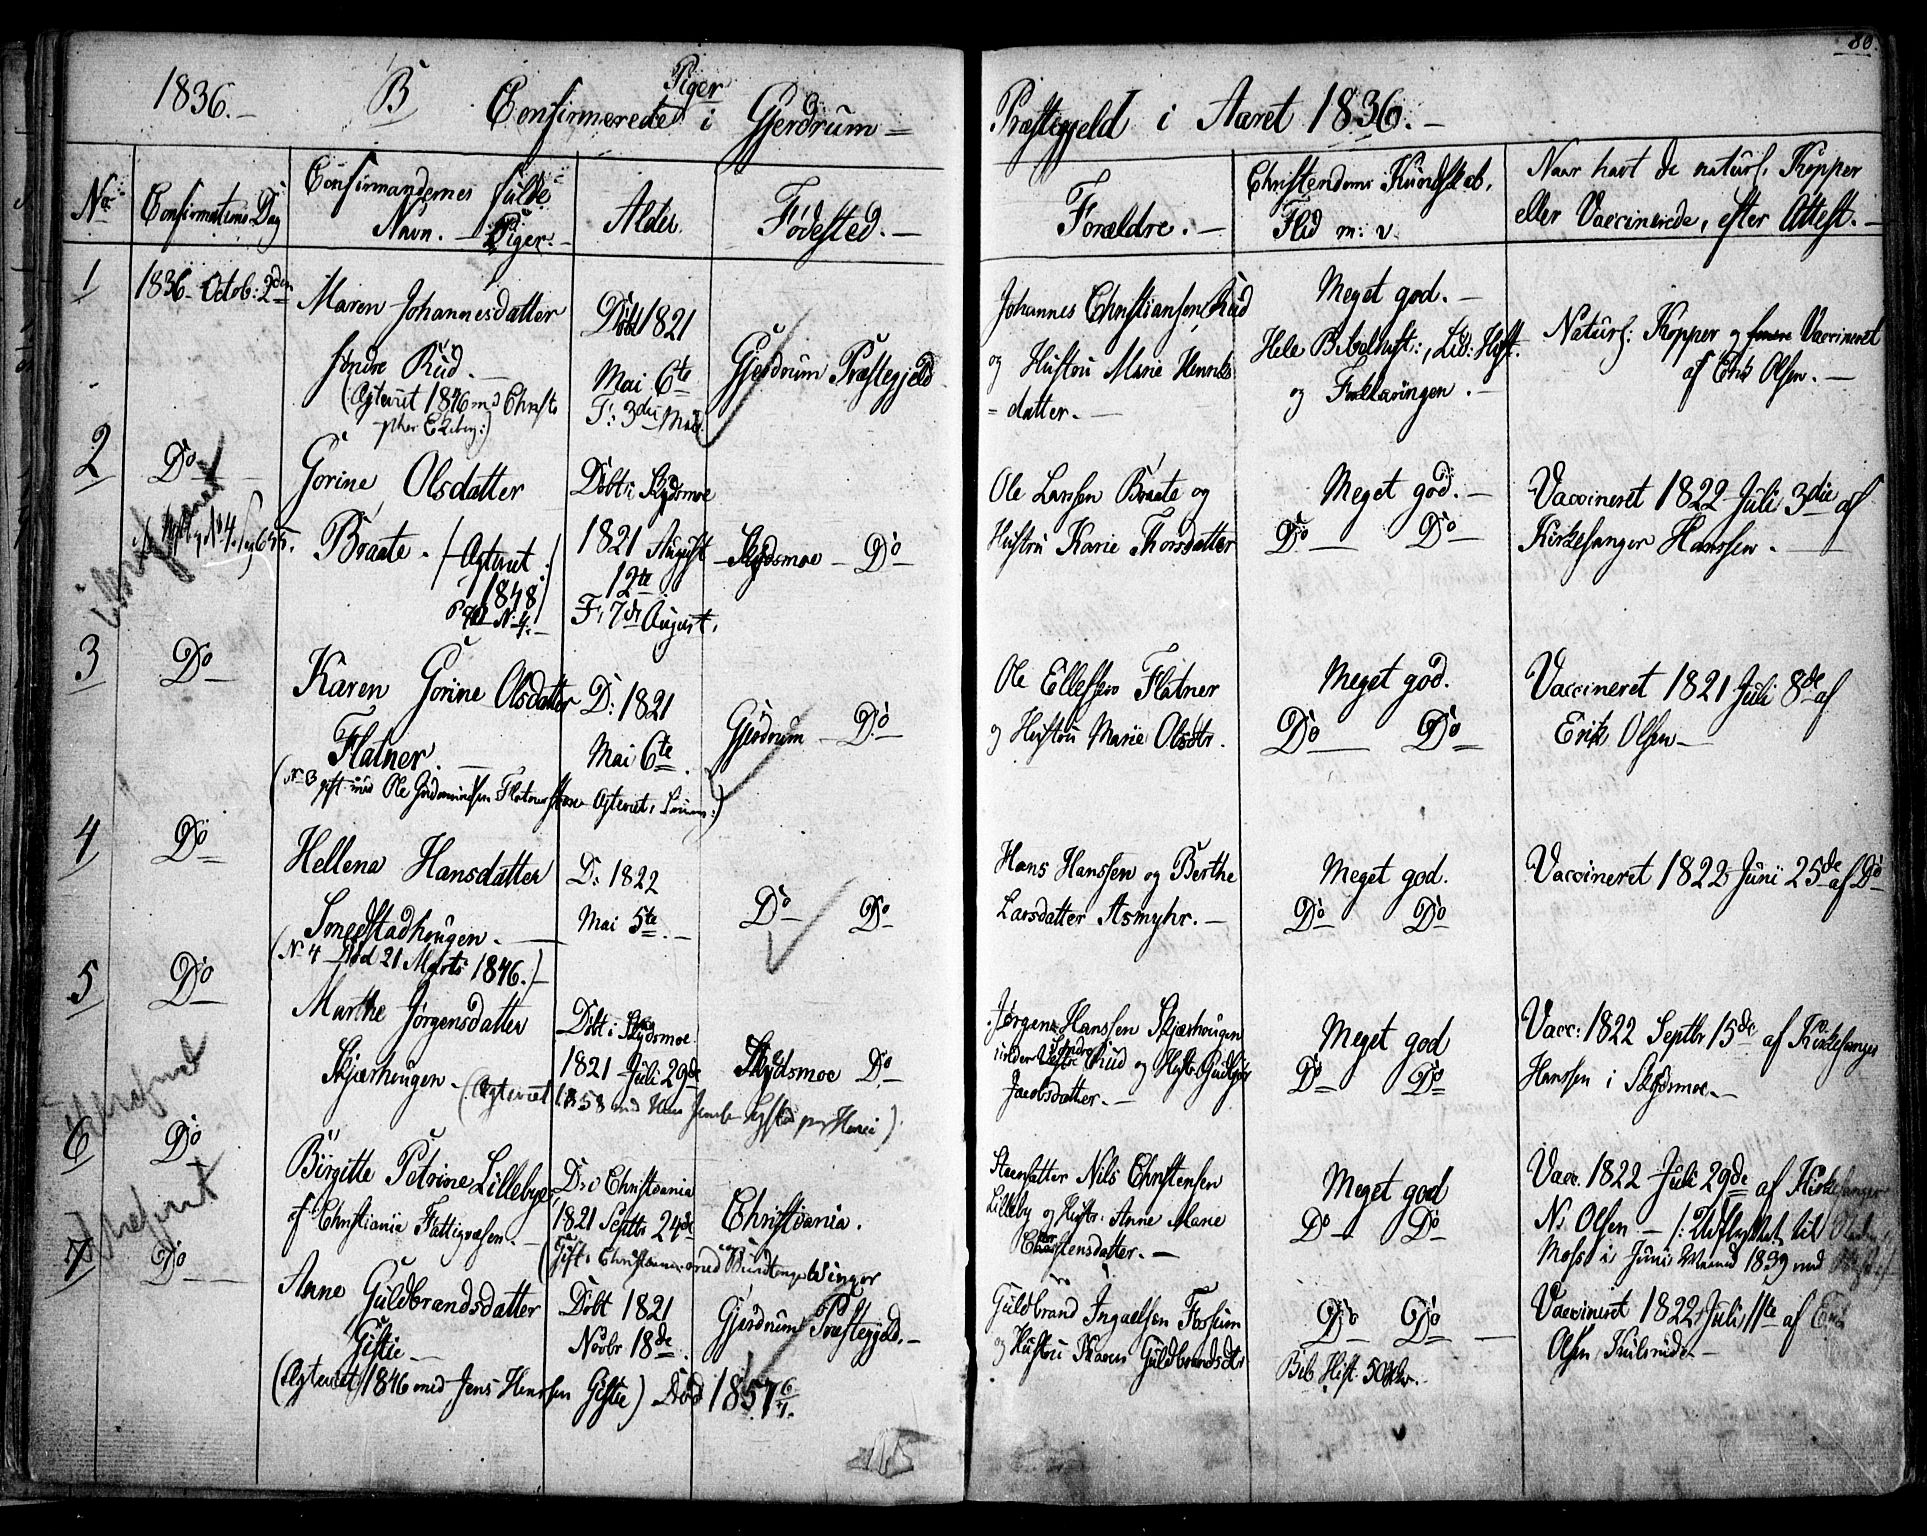 80.
1836.— B Confirmerede Piger i Gjerdrum=
Præstegjeld i Aaret 1836.—
No Confirmations Dag Confirmandernes fulde Navn.— Piger.— Alder. Fødested.—
Forældre.— Christendoms Kundskab, Flid m: v. Naar havt de naturl. Kopper
eller Vaccinerede, efter Attest.—
1 1836 Octob: 2den Maren Johannesdatter
søndre Rud.—
(Egteviet 1846 md Christo
pher
Døbt 1821
Mai 6te
F: 3die Mai.
Gjerdrum Præstegjeld
Johannes Christiansen Rud
og Hustru Marie Henriks
=datter.—
Meget god.—
Hele Bibelhist:, Lid: Hist.
og Forklaringen.—
Naturl: Kopper og Vaccineret
af Erik Olsen.—
2 Do Gorine Olsdatter
Braate. (Egteviet
1848)
No 4.—
Døbt i Skydsmoe
1821 August
12te
F: 7de August.
Skydsmoe — Do
Ole Larssen Braate og
Hustru Karie Thorsdatter
Meget god.—
Do Do
Vaccineret 1822 Juli 3die af
Kirkesanger Hanssen.—
3 Do Karen Gorine Olsdatter
Flatner.—
(No 3 gift med Ole Gudmundsen Flatner Egteviet
D: 1821
Mai 6te.
Gjerdrum — Do
Ole Ellefsen Flatner
og Hustru Marie Olsdtr.
Meget god.
Do Do
Vaccineret 1821 Juli 8de af
Erik Olsen—
4 Do Hellena Hansdatter
Smedstadhougen.—
(No 4 Død 21 Marts 1846.)—
D: 1822
Mai 5te.—
Do Do
Hans Hanssen og Berthe
Larsdatter Asmyhr.—
Meget god.
Do Do
Vaccineret 1822 Juni 25de af Do
5 Do Marthe Jørgensdatter
Skjærhougen.—
(Egteviet 1858 med Hans
Døbt i Skydsmoe
1821 Juli 29de
Skydsmoe Do
Jørgen Hanssen Skjærhougen
under Søndre Rud og Hustr:
Jacobsdatter.—
Meget god
Do Do
Vacc: 1822 Septbr 15de af Kirkesanger
Hanssen i Skydsmoe.—
6 Do Birgitte Petrine Lillebye
af Christiania Fattigvæsen.—
D: i Christiania
1821 Septbr 24de
Christiania.
(Gift i Christiania med Winger
Steenhatter Nils Christensen
Lilleby og Hustr: Anne Marie
Christensdatter.—
Meget god
Do Do
Vacc. 1822 Juli 29de af Kirkesanger
N: Olsen — /: Udflyttet til
Moss i Juni Maaned 1839 med
7 Do Anne Guldbrandsdatter
Gistie—
(Egteviet 1846 med Jens Hanssen Gistie) Død 1857 6/7.
Døbt 1821
Novbr 18de.
Gjerdrum Præstegjeld.—
Guldbrand Ingvelsen Fossum
og Hustru Karen Guldbrandsdtr
Do Do
Bib. Hist.
Vaccineret 1822 Juli 11te af Erik
Olsen